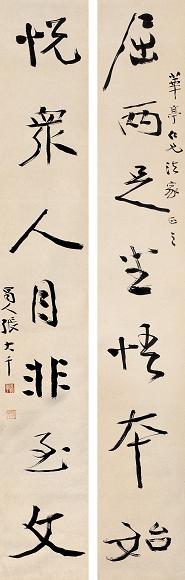 華亭仁兄法家正之
屈兩足坐悟本始
悅衆人目非至文
蜀人張大千